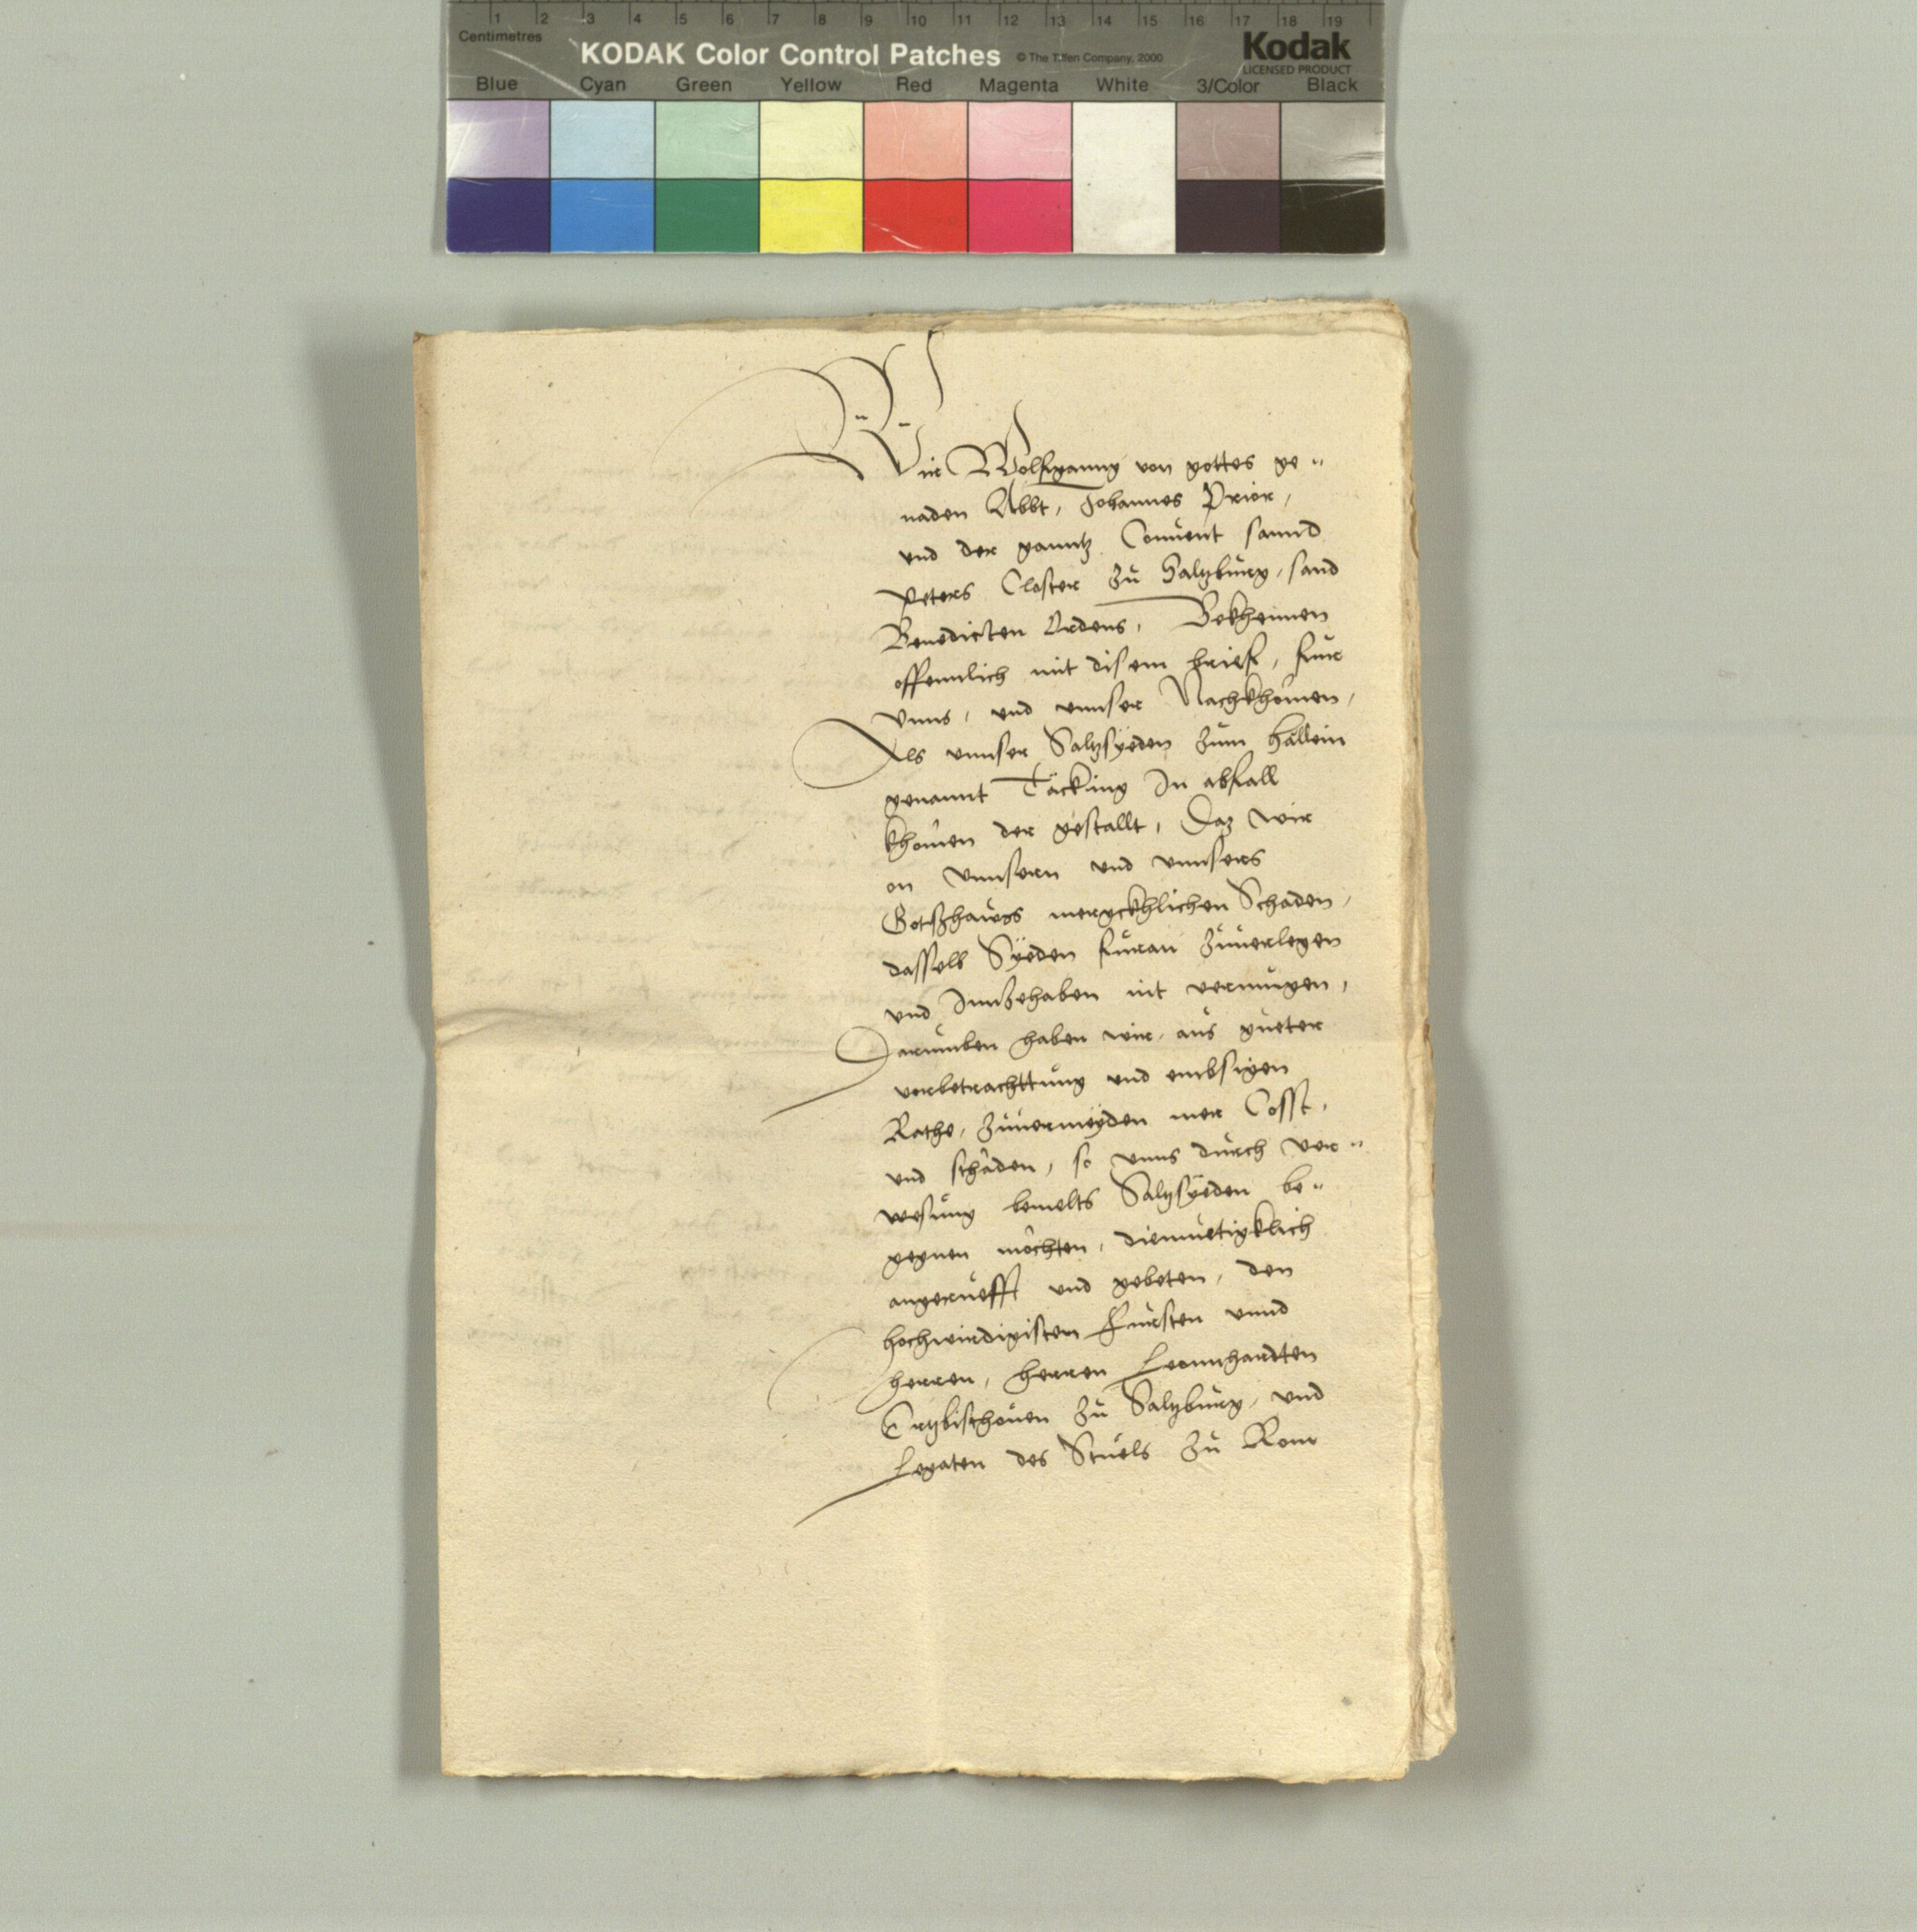 1 2 3 4 5 6 7 8 9 10 11 12 13 14 15 16 17 18 19
Centimetres
KODAK Color Control Patches © The Tiffen Company, 2000 Kodak
LICENSED PRODUCT
Blue Cyan Green Yellow Red Magenta White 3/Color Black
Wir Wolfganng von gottes ge"
naden Abbt, Johannes Prior,
vnd der ganntz Conuent sannd
Peters Closter zu Saltzburg, sand
Benedicten Ordens, Bekhennen
offennlich mit disem brief, fur
vnns, vnd vnnser Nachkhomen,
Als vnnser Saltzsyeden zum Hällein
genannt Täcking In abfall
khomen der gestallt, Daz wir
on vnnsern vnd vnnsers
Gotzhawss mergckhlichen Schaden,
dasselb Syeden furan zuuerlegen
vnd Innzehaben nit vermugen,
Darumben haben wir, aus gueter
vorbetrachttung vnd embsigen
Rathe, zuuermeyden mer Cosst,
vnd schäden, so vnns durch ver"
wesung bemelts Saltzsyeden be"
gegnen möchten, diemuetigklich
angerüefft vnd gebeten, den
hochwirdigisten Fürsten vnnd
herren, herren Leonnhardten
Ertzbischouen zu Saltzburg, vnd
Legaten des Stuels zu Rom